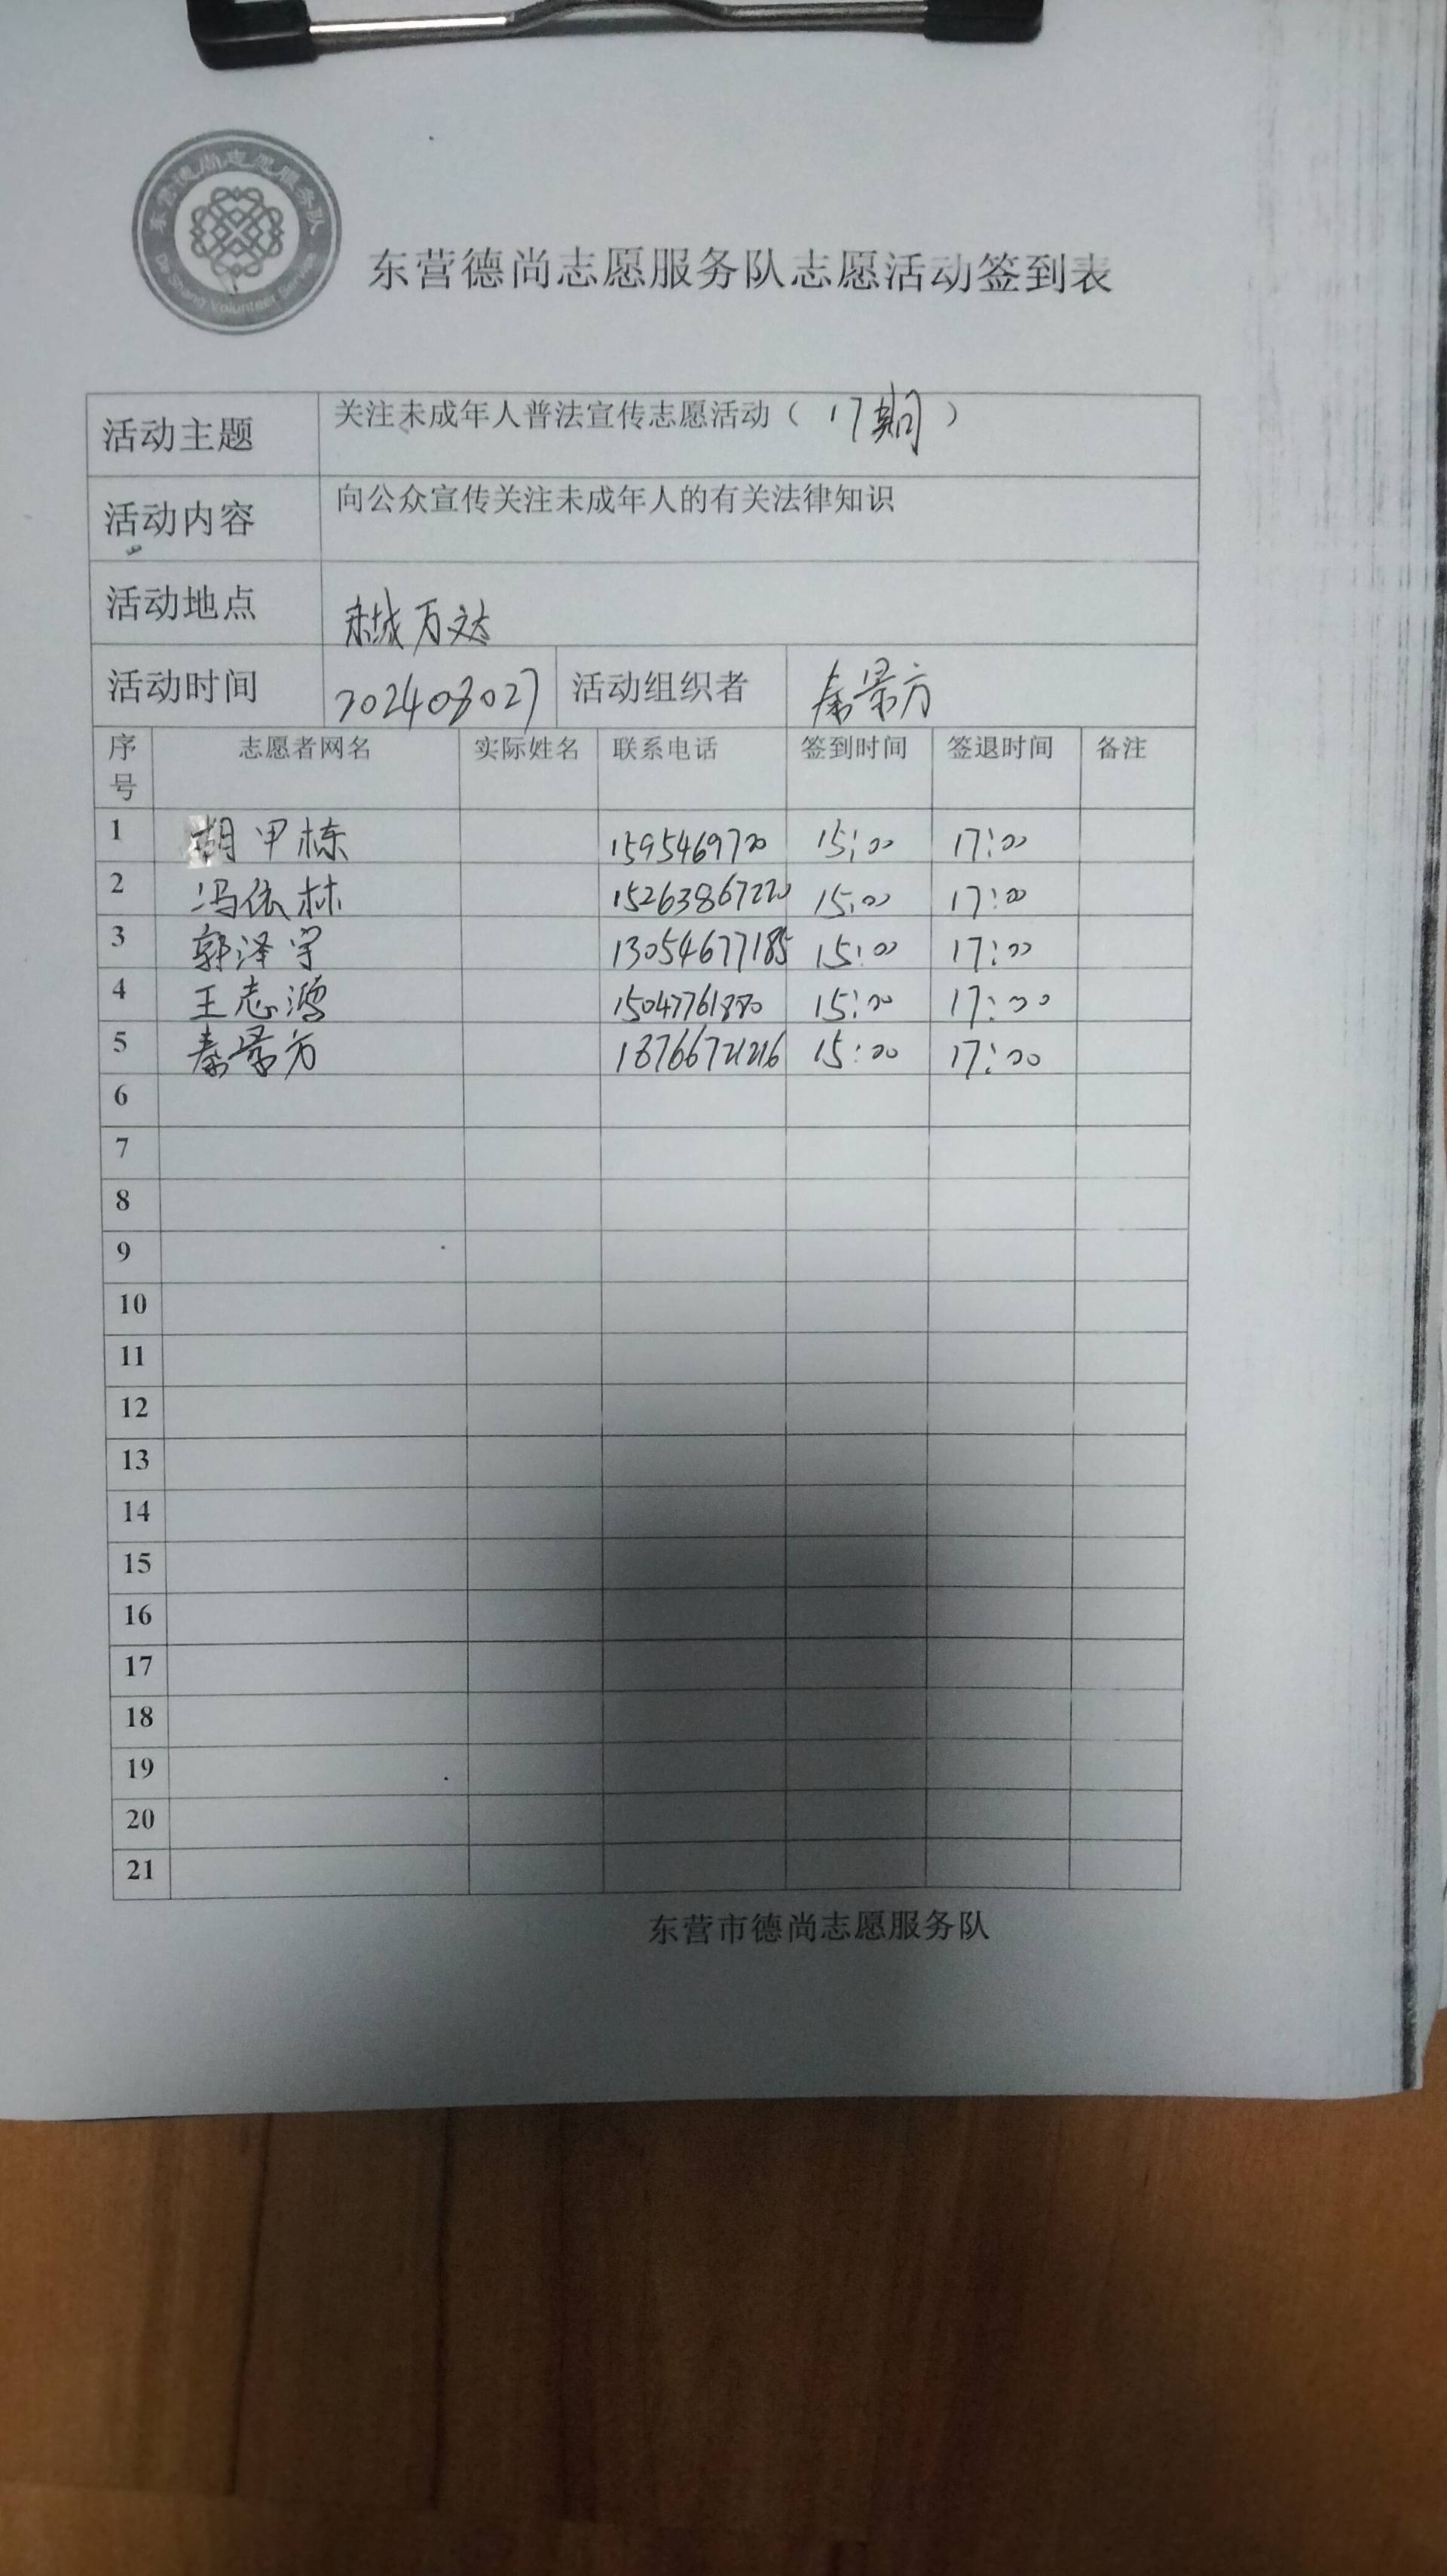 东营德尚志愿服务队
De Shang Volunteer Service
东营德尚志愿服务队志愿活动签到表
活动主题 关注未成年人普法宣传志愿活动（ 17期 ）
活动内容 向公众宣传关注未成年人的有关法律知识
活动地点 东城万达
活动时间 活动组织者 秦景方
序号 志愿者网名 实际姓名 联系电话 签到时间 签退时间 备注
1 胡甲栋 15:00 17:00
2 冯依林 15263867220 15:00 17:00
3 郭泽宇 13054677185 15:00 17:00
4 王志鸿 15047761880 15:00 17:00
5 秦景方 15:00 17:00
6
7
8
9
10
11
12
13
14
15
16
17
18
19
20
21
东营市德尚志愿服务队